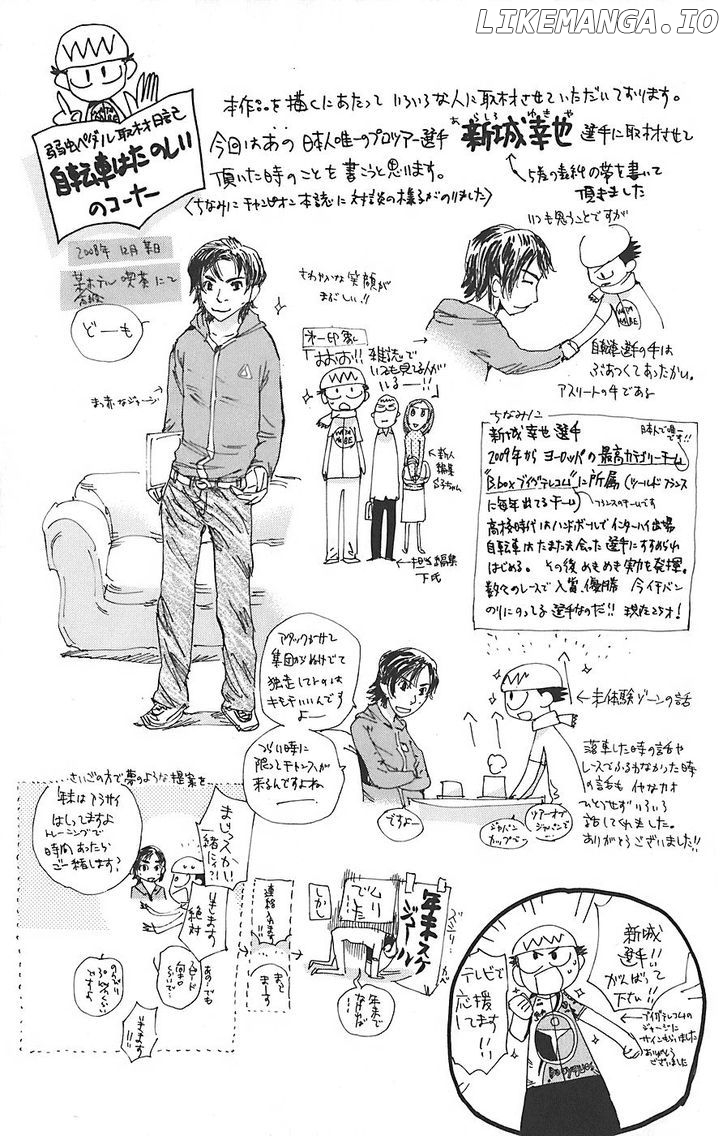 LIKEMANGA.IO
弱虫ペダル取材日記
自転車はたのしい
のコーナー
本作品を描くにあたって いろいろな人に取材させていただいております。
今回はあの 日本人唯一のプロツアー選手 新城幸也 選手に取材させて
頂いた時のことを書こうと思います。
〈ちなみに チャンピオン本誌に対談の様子がのりました〉
頂きました
2008年 12月某日
某ホテル 喫茶にて
どーも
まっ赤なジャージ
さわやかな笑顔が
まぶしい!!
第一印象
「おおお!! 雑誌で
いつも見てる人が
いるー!!」
←新人
編集
←担当編集
下氏
いつも思うことですが
自転車選手の手は
ぶあつくてあったかい。
アスリートの手である
ちなみに
新城幸也 選手
日本人で唯一です!!
2009年から ヨーロッパの最高カテゴリーチーム
"B.box ブイグテレコム"に所属(ツールドフランス
に毎年出てるチーム)
フランスのチームです
高校時代はハンドボールでインターハイ出場
自転車はたまたま会った選手にすすめられ
はじめる。その後めきめき実力を発揮。
数々のレースで入賞、優勝 今イチバン
のりにのってる選手なのだ!!
アタックさせて
集団がぬけでて
独走してるのは
キモチいいんです
よー
つらい時に
限ってチャンスが
来るんですよね
ですよー
ジャパン
カップで
ツアーオブ
ジャパンで
←未体験ゾーンの話
落車した時の話や
レースでふるわなかった時
の話も イヤなカオ
ひとつせず いろいろ
話してくれました。
ありがとうございました!!
さいごの方で夢のような提案を
年末はアラサイ
はしてますよ
トレーニングで
時間あったら
ご一緒します?
まじっスかい!
一緒にィ?!
行きます
絶対
あ?でも
スピード
のんびり
30km/hくらい
ですよ
行きます
!!
連絡
まってます
しかし
年末スケジュール
年末まで
新城
選手!!
がんばって
下さい!!
テレビで
応援
してます!!
←ブイグテレコムの
ジャージに
サインもらいました
ありがとう
ございました